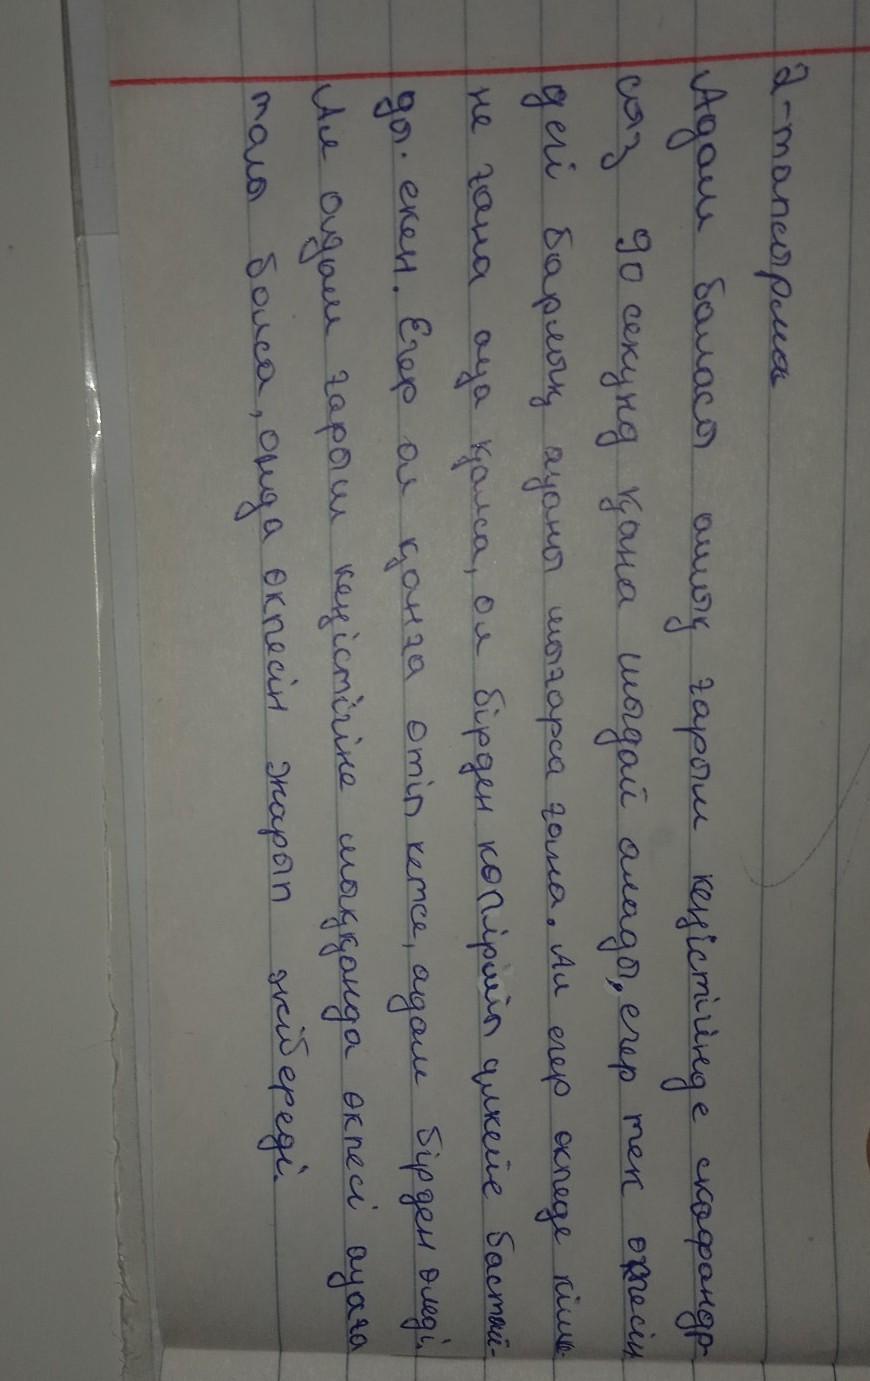 2-тапсырма
Адам баласы ашық ғарыш кеңістігінде скафандр-
сыз 90 секунд қана шыдай алады, егер тек өкпесін
дегі барлық ауаны шығарса ғана. Ал егер өкпеде кішке-
не ғана ауа қалса, ол бірден көпіршіп үлкейе бастай-
ды. екен. Егер ол қанға өтіп кетсе, адам бірден өледі.
Ал адам ғарыш кеңістігіне шыққанда өкпесі ауаға
толы болса, онда өкпесін жарып жібереді.